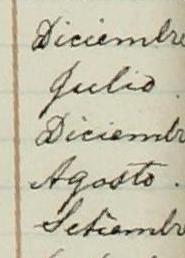 Diciembre
Julio.
Diciembr
Agosto.
Setiembr